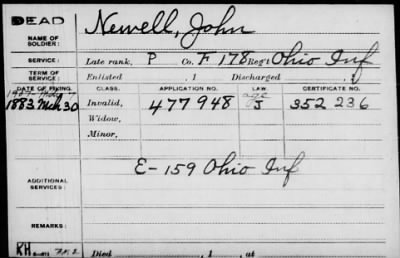 DEAD
NAME OF SOLDIER:
Newell, John
SERVICE:
Late rank, P Co. F 178 Reg't Ohio Inf
TERM OF SERVICE:
Enlisted , 1 Discharged , 1
DATE OF FILING.
CLASS.
APPLICATION NO.
LAW.
CERTIFICATE NO.
1883 Mch 30
Invalid,
477948
J
352 236
Widow,
Minor,
ADDITIONAL SERVICES:
E-159 Ohio Inf
REMARKS:
RH
Died , 1 , at